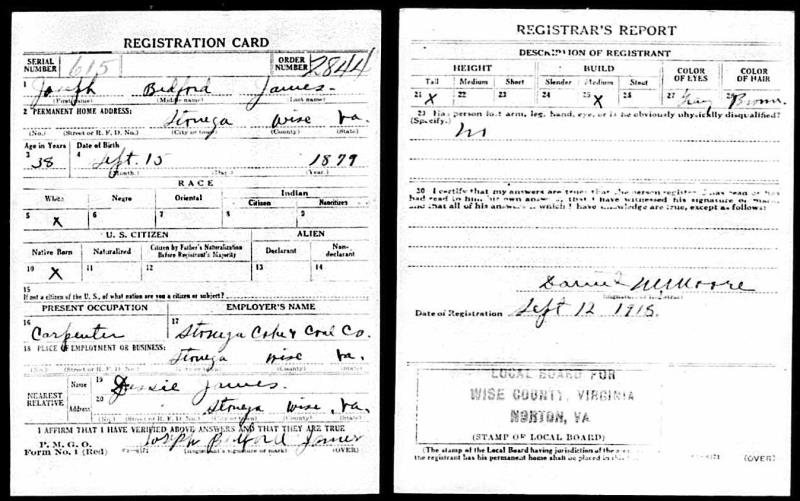 REGISTRATION CARD
SERIAL NUMBER 615 ORDER NUMBER 2844
1 Joseph Bedford James
(First name) (Middle name) (Last name)
2 PERMANENT HOME ADDRESS: Stonega Wise Va.
(No.) (Street or R. F. D. No.) (City or town) (County) (State)
Age in Years Date of Birth
3 38 4 Sept. 15 1879
(Month.) (Day.) (Year.)
RACE
White Negro Oriental Indian
Citizen Noncitizen
5 X 6 7 8 9
U. S. CITIZEN ALIEN
Native Born Naturalized Citizen by Father's Naturalization Before Registrant's Majority Declarant Non-declarant
10 X 11 12 13 14
15
If not a citizen of the U. S., of what nation are you a citizen or subject?
PRESENT OCCUPATION EMPLOYER'S NAME
16 Carpenter 17 Stonega Coke & Coal Co.
18 PLACE OF EMPLOYMENT OR BUSINESS:
Stonega Wise Va.
(No.) (Street or R. F. D. No.) (City or town) (County) (State)
NEAREST RELATIVE Name 19 James.
Address 20 Stonega Wise, Va.
(No.) (Street or R. F. D. No.) (City or town) (County) (State)
I AFFIRM THAT I HAVE VERIFIED ABOVE ANSWERS AND THAT THEY ARE TRUE
P. M. G. O.
Form No. 1 (Red) Joseph Bedford James
(Registrant's signature or mark) (OVER)
REGISTRAR'S REPORT
DESCRIPTION OF REGISTRANT
HEIGHT BUILD COLOR OF EYES COLOR OF HAIR
Tall Medium Short Slender Medium Stout
21 X 22 23 24 25 X 26 27 Gray 28 Brown
29 Has person lost arm, leg, hand, eye, or is he obviously physically disqualified?
(Specify.) No
30 I certify that my answers are true; that the person registered has read or has
had read to him his own answers; that I have witnessed his signature or mark
and that all of his answers of which I have knowledge are true, except as follows:
Daniel M. Moore
(Signature of Registrar)
Date of Registration Sept 12 1918.
LOCAL BOARD FOR
WISE COUNTY, VIRGINIA
NORTON, VA
(STAMP OF LOCAL BOARD)
(The stamp of the Local Board having jurisdiction of the area
the registrant has his permanent home shall be placed in this
(OVER)